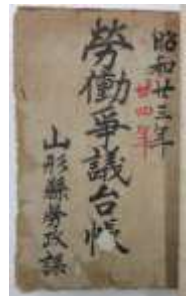 昭和廿三年
廿四年
勞働爭議台帳
山形縣勞政課